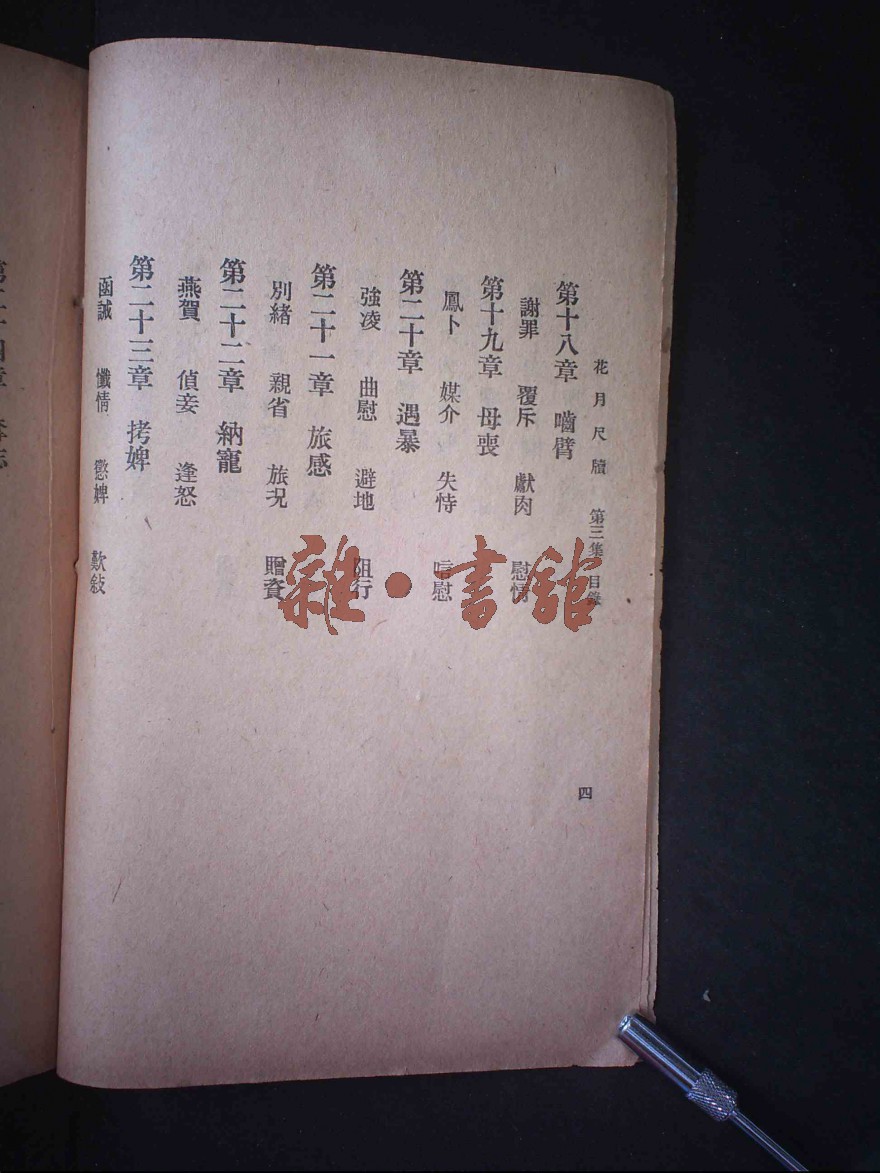 花月尺牘 第三集 目錄
四
第十八章 嚙臂
謝罪 覆斥 獻肉 慰情
第十九章 母喪
鳳卜 媒介 失恃 唁慰
第二十章 遇暴
強凌 曲慰 避地 阻行
第二十一章 旅感
別緒 親省 旅況 贈資
第二十二章 納寵
燕賀 偵妾 逢怒
第二十三章 拷婢
函誡 懺情 懲婢 歎敍
雜·書館